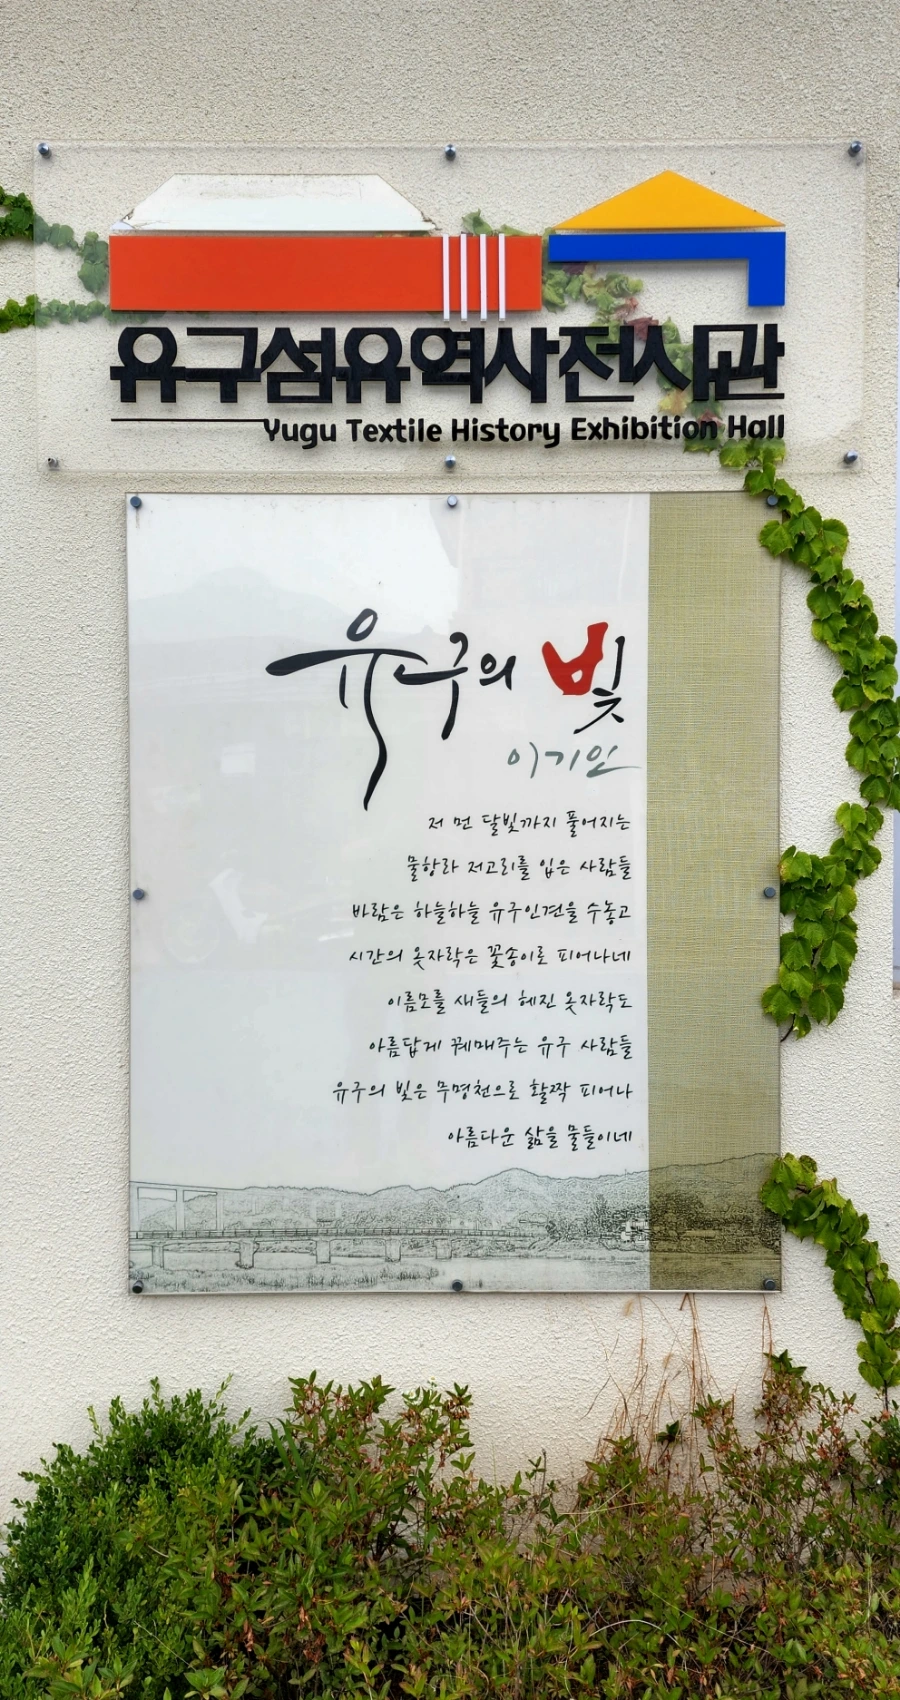 유구섬유역사전시관
Yugu Textile History Exhibition Hall
유구의 빛
이기인
저 먼 달빛까지 풀어지는
물항라 저고리를 입은 사람들
바람은 하늘하늘 유구인견을 수놓고
시간의 옷자락은 꽃송이로 피어나네
이름모를 새들의 헤진 옷자락도
아름답게 꿰매주는 유구 사람들
유구의 빛은 무명천으로 활짝 피어나
아름다운 삶을 물들이네